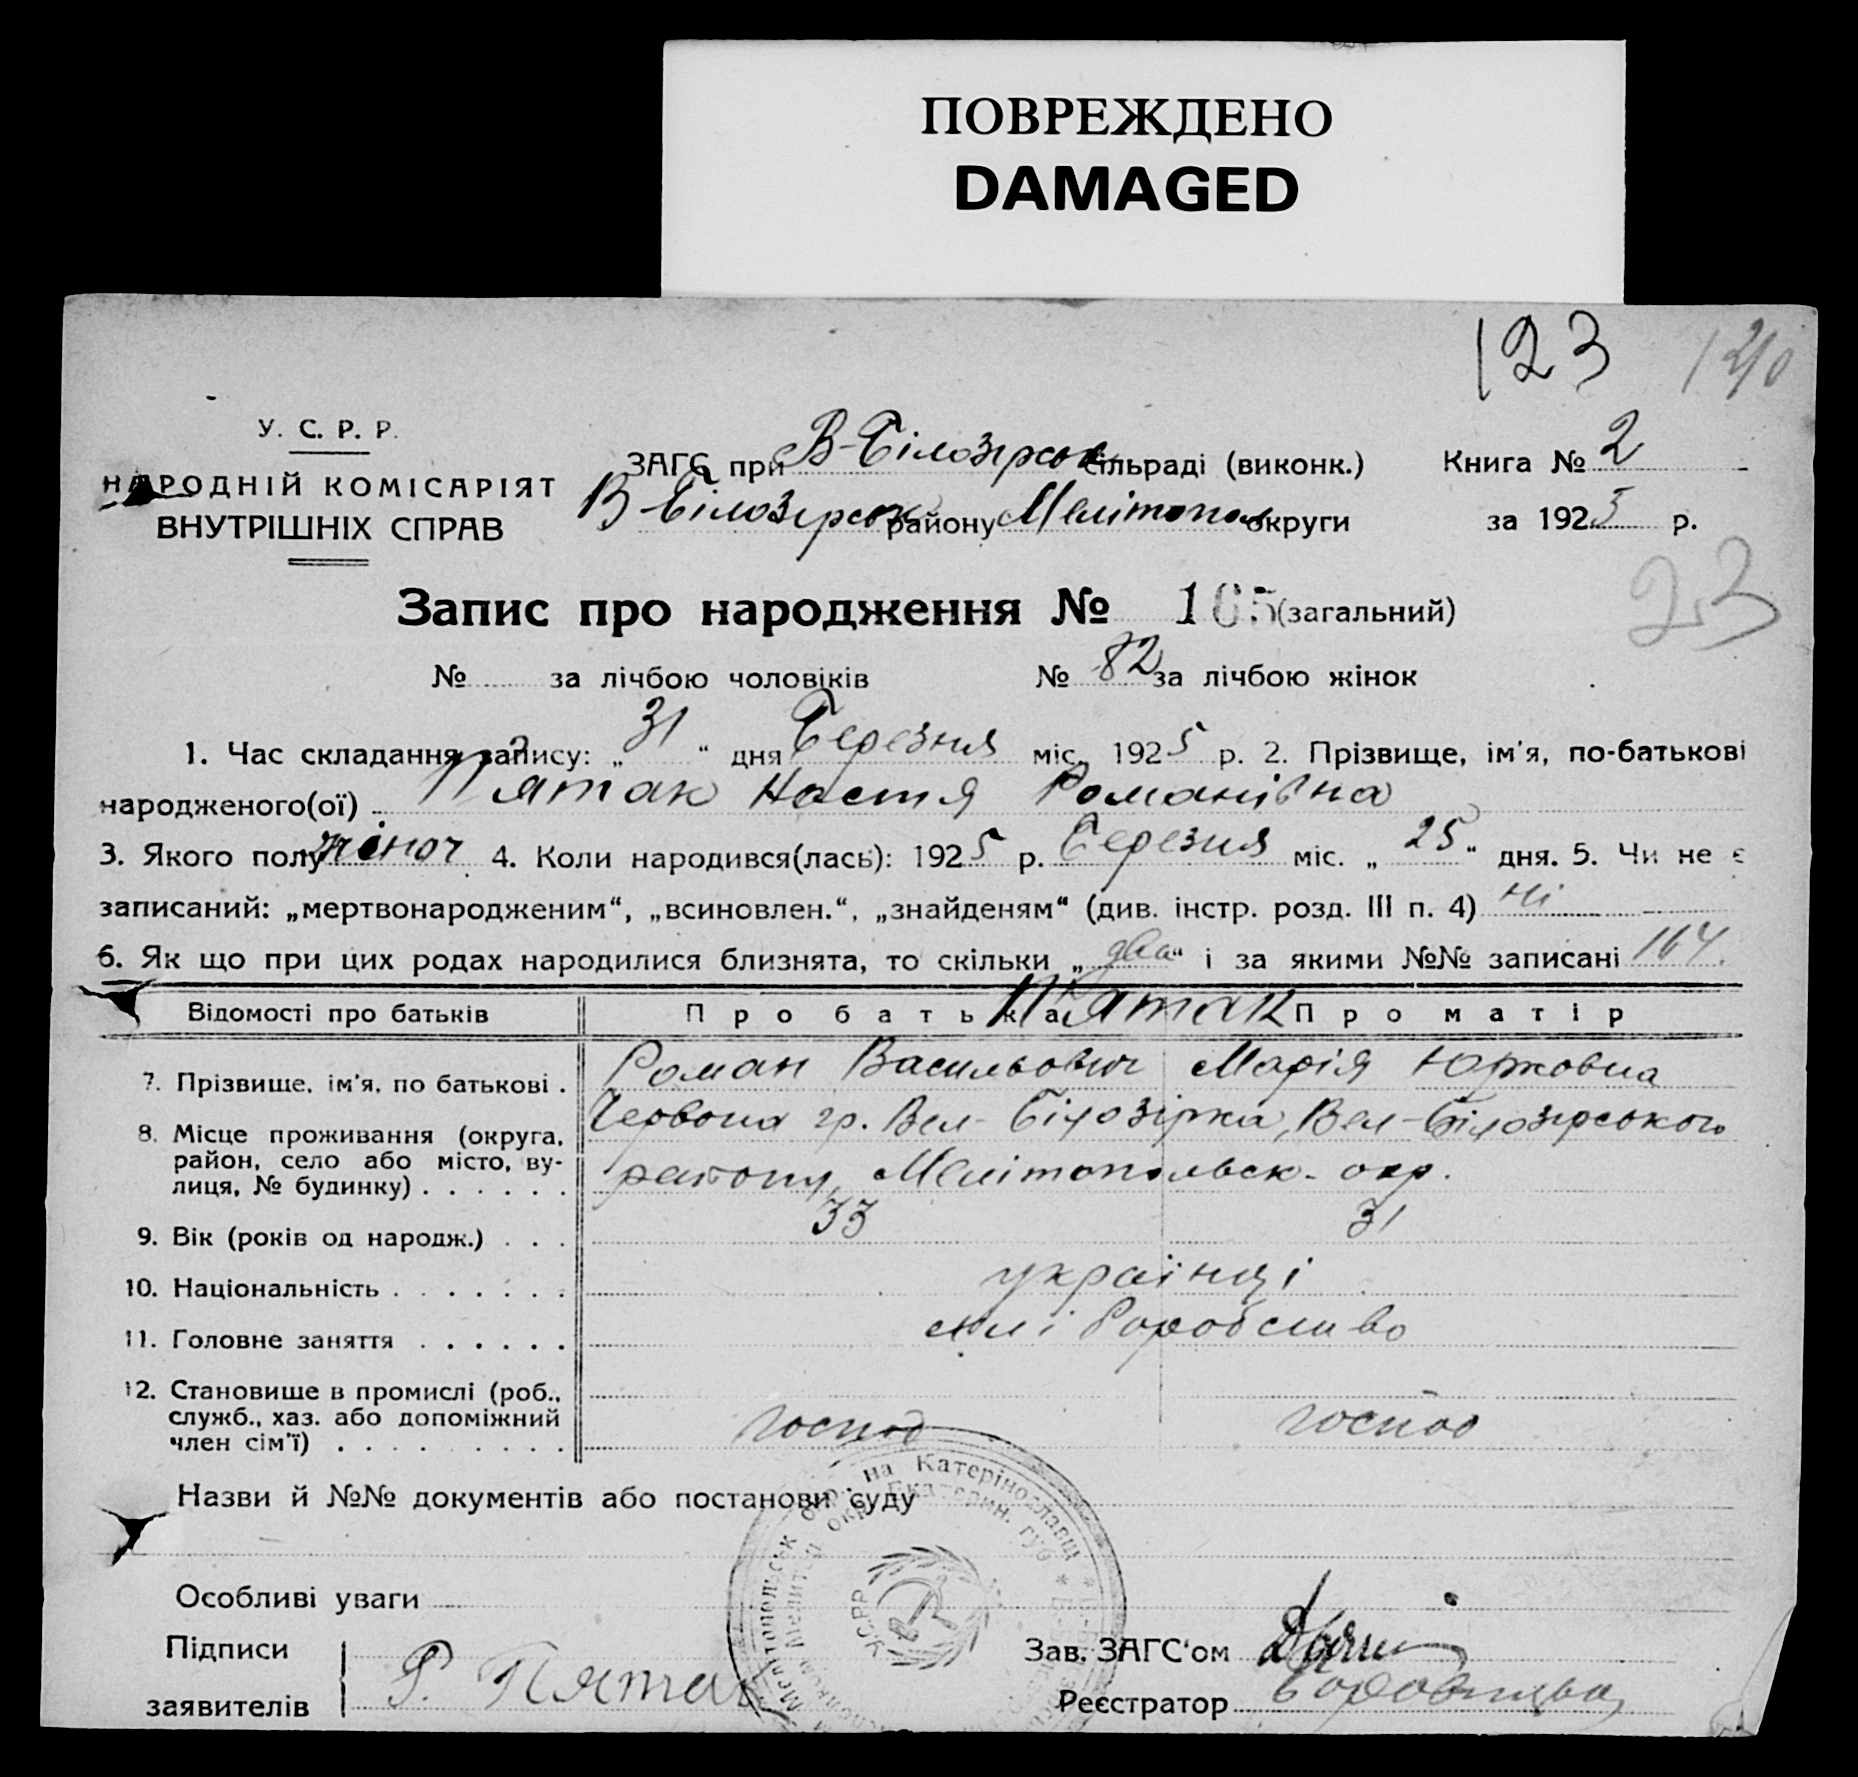 ПОВРЕЖДЕНО
DAMAGED
123 120
У. С. Р. Р.
НАРОДНІЙ КОМІСАРІЯТ
ВНУТРІШНІХ СПРАВ
ЗАГС при В-Білозірськ сільраді (виконк.) Книга № 2
В-Білозірськ району Мелітополь округи за 1925 р.
23
Запис про народження № 165 (загальний)
№ за лічбою чоловіків № 82 за лічбою жінок
1. Час складання запису: „31“ дня Березня міс. 1925 р. 2. Прізвище, ім'я, по-батькові
народженого(ої) Пятак Настя Романівна
3. Якого полу жіноч 4. Коли народився(лась): 1925 р. Березня міс. „25“ дня. 5. Чи не є
записаний: „мертвонародженим“, „всиновлен.“, „знайденям“ (див. інстр. розд. III п. 4) ні
6. Як що при цих родах народилися близнята, то скільки „два“ і за якими №№ записані 164.
Відомості про батьків Про батька Пятак Про матір
7. Прізвище, ім'я, по батькові . Роман Васильович Марія Юрковна
8. Місце проживання (округа, Червона гр. Вел-Білозірка, Вел-Білозірського
район, село або місто, ву-
лиця, № будинку) . . . . . . району, Мелітопольськ. окр.
9. Вік (років од народж.) . . . 33 31
10. Національність . . . . . . . українці
11. Головне заняття . . . . . . хліборобство
12. Становише в промислі (роб.,
служб., хаз. або допоміжний господ господ
член сім'ї) . . . . . . . . .
Назви й №№ документів або постанови суду
на Катерінославщ
окр. Екатерин. губ
Мелітопольськ
УСРР
Особливі уваги
Підписи
заявителів Р. Пятак
Зав. ЗАГС'ом
Реєстратор